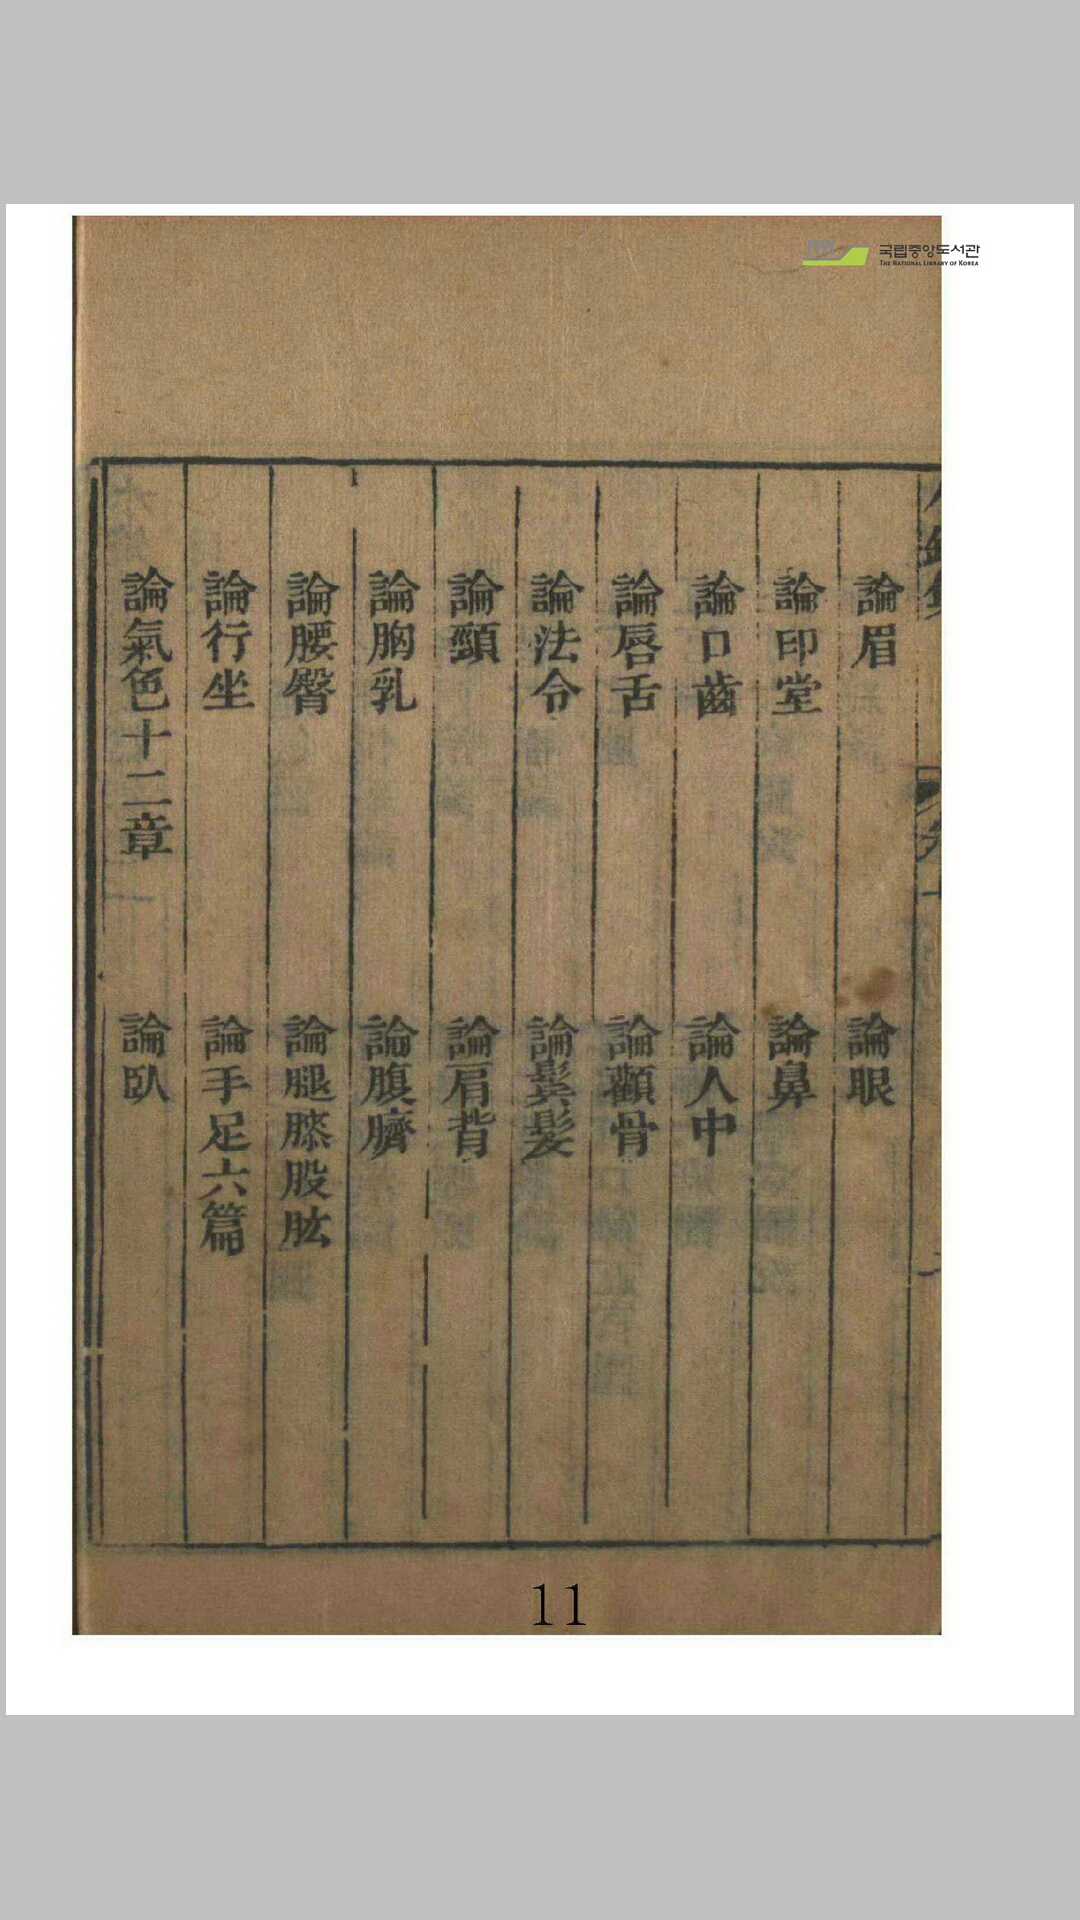 국립중앙도서관
THE NATIONAL LIBRARY OF KOREA
論眉 論眼
論印堂 論鼻
論口齒 論人中
論唇舌 論顴骨
論法令 論鬂髮
論頸 論肩背
論胸乳 論腹臍
論腰臀 論腿膝股肱
論行坐 論手足六篇
論氣色十二章 論臥
11